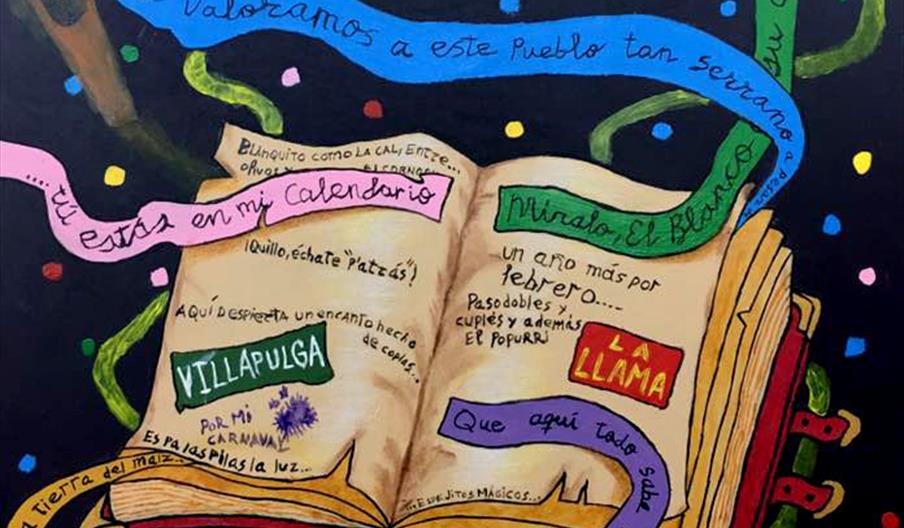 Valoramos a este Pueblo tan serrano a pesar
su
BLANQUITO COMO LA CAL, ENTRE...
olivos y
.... tú estás en mi Calendario
¡Quillo, échate "P'atrás"!
AQUÍ DESPIERTA UN ENCANTO HECHO
de coplas...
VILLAPULGA
POR MI
CARNAVAL
Es pa las pilas la luz...
tierra del maíz...
Míralo, El Blanco
un año más por
febrero....
Pasodobles y
cuplés y además
EL POPURRI
LA
LLAMA
Que aquí todo sabe
ESPEJITOS MÁGICOS...